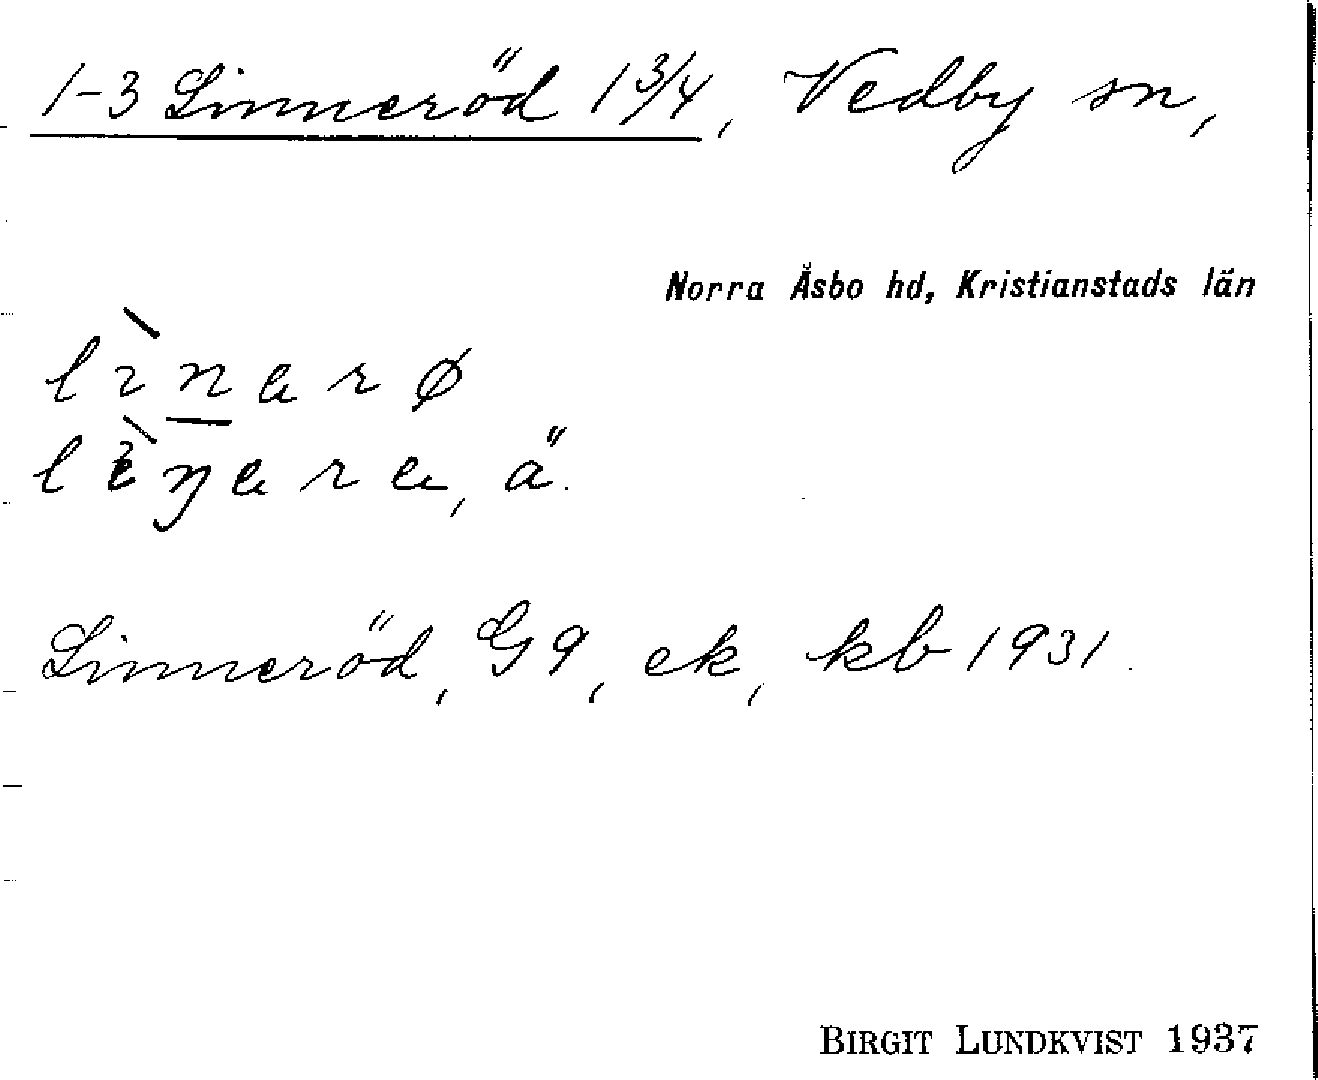 1-3 Linneröd 1 3/4, Vedby sn,
Norra Åsbo hd, Kristianstads län
lìnarø
lìŋara, ä.
Linneröd, G9, ek, kb 1931.
BIRGIT LUNDKVIST 1937